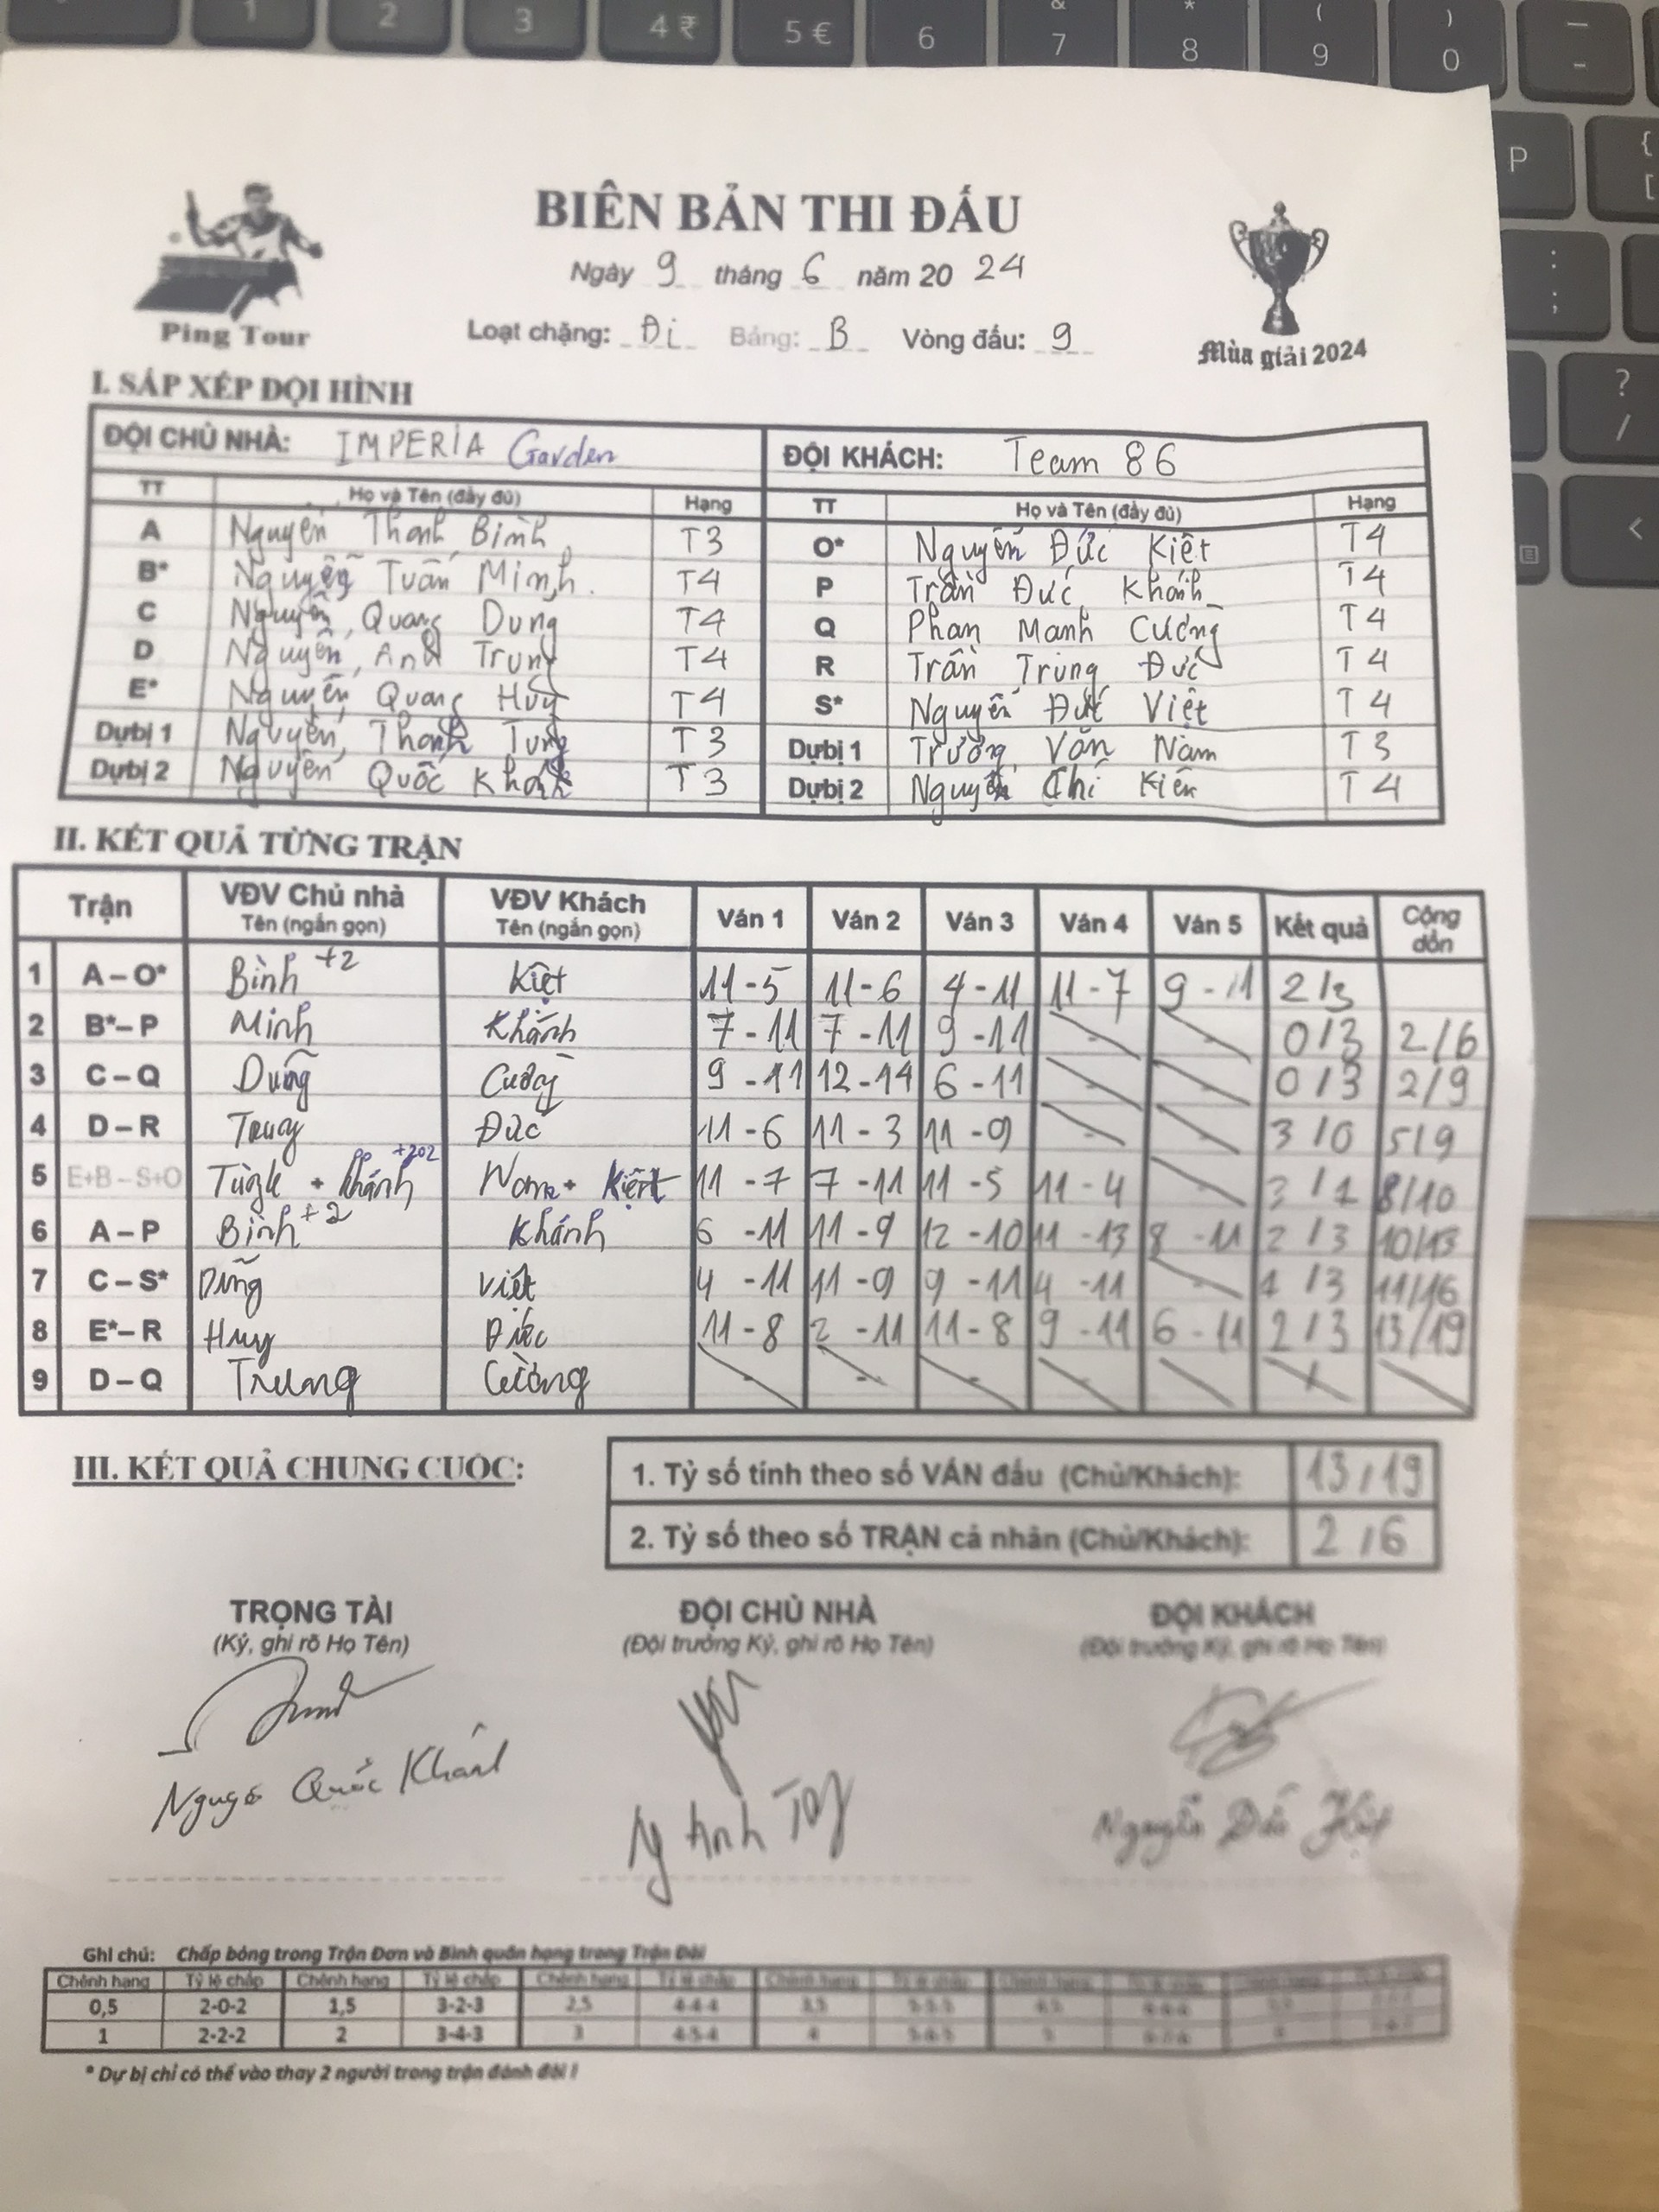 1 2 3 4 ₹ 5 € & * ( ) _
6 7 8 9 0 -
P { [
: ;
? /
<
BIÊN BẢN THI ĐẤU
Ngày 9 tháng 6 năm 20 24
Ping Tour
Loạt chặng: Đi Bảng: B Vòng đấu: 9
Mùa giải 2024
I. SẮP XẾP ĐỘI HÌNH
ĐỘI CHỦ NHÀ: IMPERIA Garden ĐỘI KHÁCH: Team 86
TT Họ và Tên (đầy đủ) Hạng TT Họ và Tên (đầy đủ) Hạng
A Nguyễn Thanh Bình T3 O* Nguyễn Đức Kiệt T4
B* Nguyễn Tuấn Minh. T4 P Trần Đức Khánh T4
C Nguyễn Quang Dũng T4 Q Phan Mạnh Cường T4
D Nguyễn Anh Trung T4 R Trần Trung Đức T4
E* Nguyễn Quang Huy T4 S* Nguyễn Đức Việt T4
Dự bị 1 Nguyễn Thanh Tùng T3 Dự bị 1 Trương Văn Nam T3
Dự bị 2 Nguyễn Quốc Khánh T3 Dự bị 2 Nguyễn Chí Kiên T4
II. KẾT QUẢ TỪNG TRẬN
Trận VĐV Chủ nhà Tên (ngắn gọn) VĐV Khách Tên (ngắn gọn) Ván 1 Ván 2 Ván 3 Ván 4 Ván 5 Kết quả Cộng dồn
1 A – O* Bình +2 Kiệt 11 - 5 11 - 6 4 - 11 11 - 7 9 - 11 2/3
2 B* – P Minh Khánh 7 - 11 7 - 11 9 - 11 - - 0/3 2/6
3 C – Q Dũng Cường 9 - 11 12 - 14 6 - 11 - - 0/3 2/9
4 D – R Trung Đức 11 - 6 11 - 3 11 - 9 - - 3/0 5/9
5 E+B – S+O + Khánh +202 Nam + Kiệt 11 - 7 7 - 11 11 - 5 11 - 4 - 3/1 8/10
6 A – P Bình +2 Khánh 6 - 11 11 - 9 12 - 10 11 - 13 8 - 11 2/3 10/13
7 C – S* Dũng Việt 4 - 11 11 - 9 9 - 11 4 - 11 - 1/3 11/16
8 E* – R Huy Đức 11 - 8 2 - 11 11 - 8 9 - 11 6 - 11 2/3 13/19
9 D – Q Trung Cường - - - - - /
III. KẾT QUẢ CHUNG CUỘC:
1. Tỷ số tính theo số VÁN đấu (Chủ/Khách): 13/19
2. Tỷ số theo số TRẬN cá nhân (Chủ/Khách): 2/6
TRỌNG TÀI ĐỘI CHỦ NHÀ ĐỘI KHÁCH
(Ký, ghi rõ Họ Tên) (Đội trưởng Ký, ghi rõ Họ Tên) (Đội trưởng Ký, ghi rõ Họ Tên)
Quốc Khánh Anh Nguyễn
Ghi chú: Chấp bóng trong Trận Đơn và Bình quân hạng trong Trận Đôi
Chênh hạng Tỷ lệ chấp Chênh hạng Tỷ lệ chấp Chênh hạng Tỷ lệ chấp
0,5 2-0-2 1,5 3-2-3 2,5 4-4-4 3,5 5-5-5
1 2-2-2 2 3-4-3 3 4-5-4 4 5-6-5
* Dự bị chỉ có thể vào thay 2 người trong trận đánh đôi !